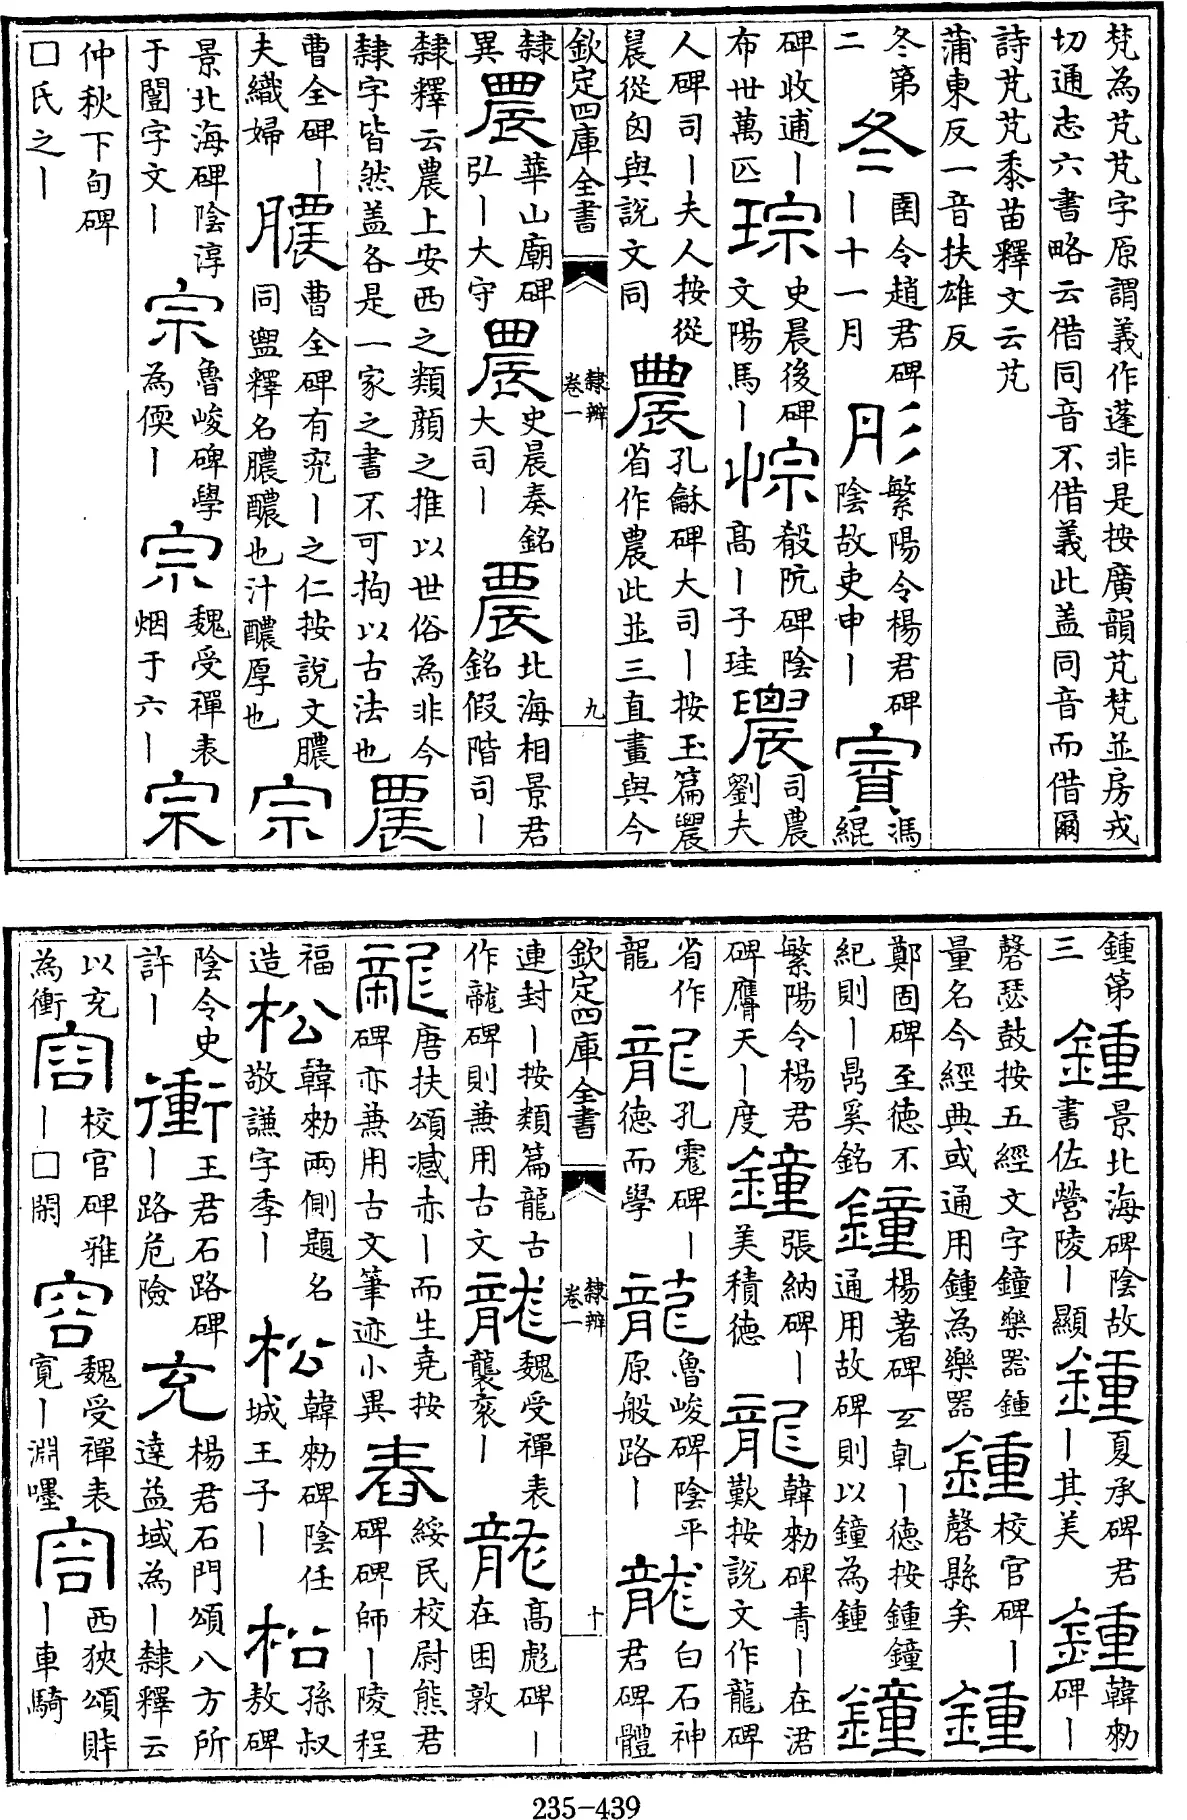 梵為芃芃字原謂義作蓬非是按廣韻芃梵並房戎
切通志六書略云借同音不借義此盖同音而借爾
詩芃芃黍苗釋文云芃
蒲東反一音扶雄反
冬第二 冬 圉令趙君碑｜十一月 肜 繁陽令楊君碑陰故吏申｜ 賨 馮緄
碑收逋｜布卅萬匹 琮 史晨後碑文陽馬｜ 悰 殽阬碑陰高｜子珪 農 司農劉夫
人碑司｜夫人按從晨從囟與說文同 農 孔龢碑大司｜按玉篇農省作農此並三直畫與今
欽定四庫全書 隸辨卷一 九
隸異 農 華山廟碑弘｜大守 農 史晨奏銘大司｜ 農 北海相景君銘假階司｜
隸釋云農上安西之類顔之推以世俗為非今隸字皆然盖各是一家之書不可拘以古法也 農
曹全碑｜夫織婦 膿 曹全碑有兖｜之仁按說文膿同盥釋名膿醲也汁醲厚也 宗
景北海碑陰淳于闓字文｜ 宗 魯峻碑學為偄｜ 宗 魏受禪表烟于六｜ 宗
仲秋下旬碑□氏之｜
鍾第三 鍾 景北海碑陰故書佐營陵｜顯 鍾 夏承碑君｜其美 鍾 韓勑碑｜
磬瑟鼓按五經文字鐘樂器鍾量名今經典或通用鍾為樂器 鍾 校官碑｜磬縣矣 鍾
鄭固碑至徳不紀則｜鼎奚銘 鐘 楊著碑㐅乹｜德按鍾鐘通用故碑則以鐘為鍾 鐘
繁陽令楊君碑膺天｜度 鐘 張納碑｜美積德 龍 韓勑碑青｜在涒歎按說文作龍碑
省作龍 孔宙碑｜龍徳而學 龍 魯峻碑陰平原般路｜ 龍 白石神君碑體
欽定四庫全書 隸辨卷一 十
連封｜按類篇龍古作竜碑則兼用古文 龍 魏受禪表襲衮｜ 龍 高彪碑｜在困敦
龍 唐扶頌感赤｜而生堯按碑亦兼用古文筆迹小異 舂 綏民校尉熊君碑碑師｜陵程
福造 松 韓勑兩側題名敬謙字季｜ 松 韓勑碑陰任城王子｜ 松 孫叔敖碑
陰令史許｜ 衝 王君石路碑｜路危險 充 楊君石門頌八方所達益域為｜隸釋云
以充為衝 容 校官碑雅｜□閑 容 魏受禪表寛｜淵嘿 容 西狹頌財｜車騎
235-439